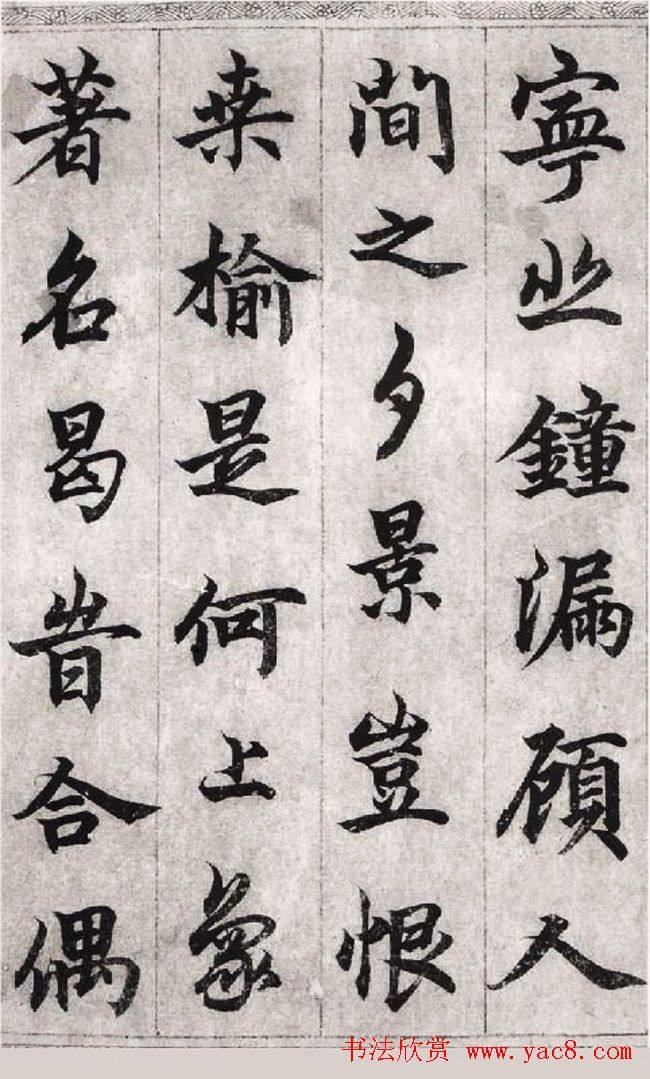 寧止鐘漏顧人
間之夕景豈恨
桒榆是何上象
著名曷旹合偶
书法欣赏 www.yac8.com